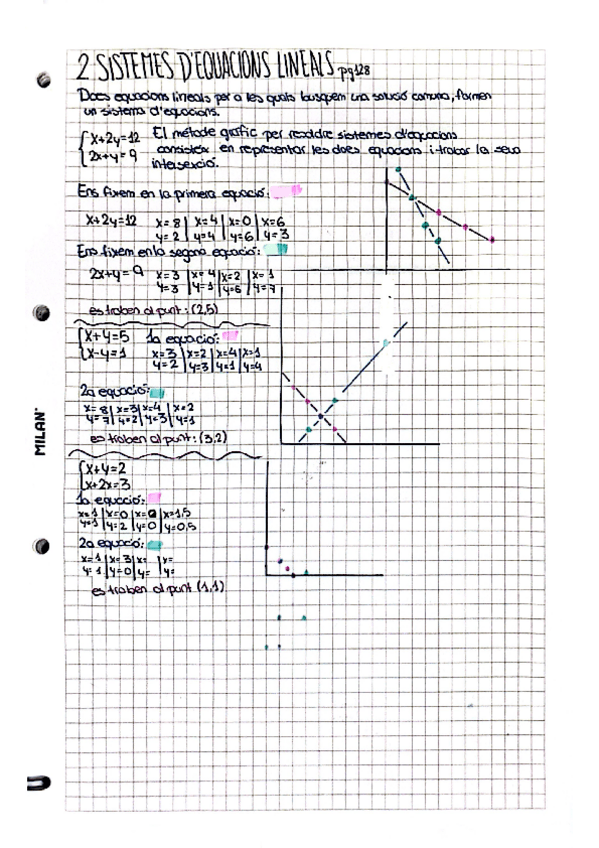 2 SISTEMES D'EQUACIONS LINEALS pg128
Does equacions lineals per a les quals busquem una solució comuna, formen
un sistema d'equacions.
x+2y=12 El mètode gràfic per resoldre sistemes d'equacions
2x+y=9 consisteix en representar les does equacions i trobar la seva
intersecció.
Ens fixem en la primera equació:
x+2y=12 x=8 | x=4 | x=0 | x=6
y=2 | y=4 | y=6 | y=3
Ens fixem en la segona equació:
2x+y=9 x=3 | x=4 | x=2 | x=1
y=3 | y=1 | y=5 | y=7
es troben al punt: (2,5)
x+y=5 1a equació:
x-y=1 x=3 | x=2 | x=4 | x=1
y=2 | y=3 | y=1 | y=4
2a equació:
x=8 | x=3 | x=4 | x=2
y=7 | y=2 | y=3 | y=1
es troben al punt: (3,2)
x+y=2
x+2x=3
1a equació:
x=1 | x=0 | x=2 | x=1,5
y=1 | y=2 | y=0 | y=0,5
2a equació:
x=1 | x=3 | x= | x=
y=1 | y=0 | y= | y=
es troben al punt (1,1)
MILAN